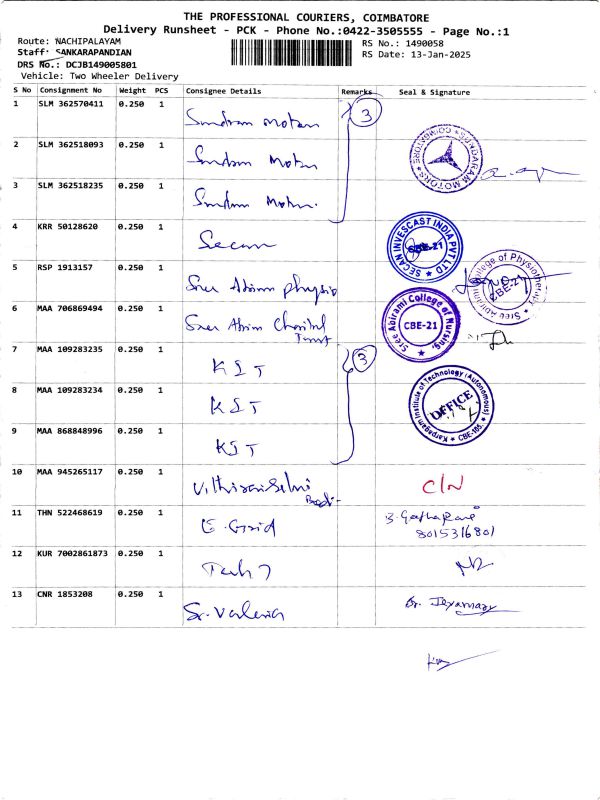 THE PROFESSIONAL COURIERS, COIMBATORE
Delivery Runsheet - PCK - Phone No.:0422-3505555 - Page No.:1
Route: NACHIPALAYAM
RS No.: 1490058
Staff: SANKARAPANDIAN
RS Date: 13-Jan-2025
DRS No.: DCJB149005801
Vehicle: Two Wheeler Delivery
S No Consignment No Weight PCS Consignee Details Remarks Seal & Signature
1 SLM 362570411 0.250 1 Sundram Motors 3
2 SLM 362518093 0.250 1 Sundram Motors
SUNDARAM MOTORS COIMBATORE
3 SLM 362518235 0.250 1 Sundram Motors
4 KRR 50128620 0.250 1 Secan
SECAN INVESCAST INDIA PVT LTD CBE-21
5 RSP 1913157 0.250 1 Sree Abirami physio
Sree Abirami College of Physiotherapy, CBE-21
6 MAA 706869494 0.250 1 Sree Abirami Charitable
Trust
Sree Abirami College of Nursing, CBE-21
7 MAA 109283235 0.250 1 KIT 3
8 MAA 109283234 0.250 1 KIT
Karpagam Institute of Technology (Autonomous) OFFICE CBE-105.
9 MAA 868848996 0.250 1 KIT
10 MAA 945265117 0.250 1 C/N
11 THN 522468619 0.250 1 E. Grid
8015316801
12 KUR 7002861873 0.250 1
13 CNR 1853208 0.250 1 Sr. Valeria Sr. Jeyamary